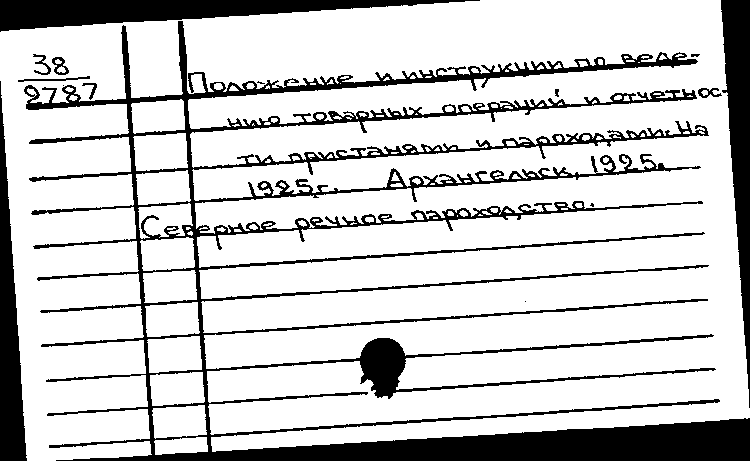 38
2787
Положение и инструкции по веде-
нию товарных операций и отчетнос-
ти пристанями и пароходами. На
1925г. Архангельск, 1925.
Северное речное пароходство.